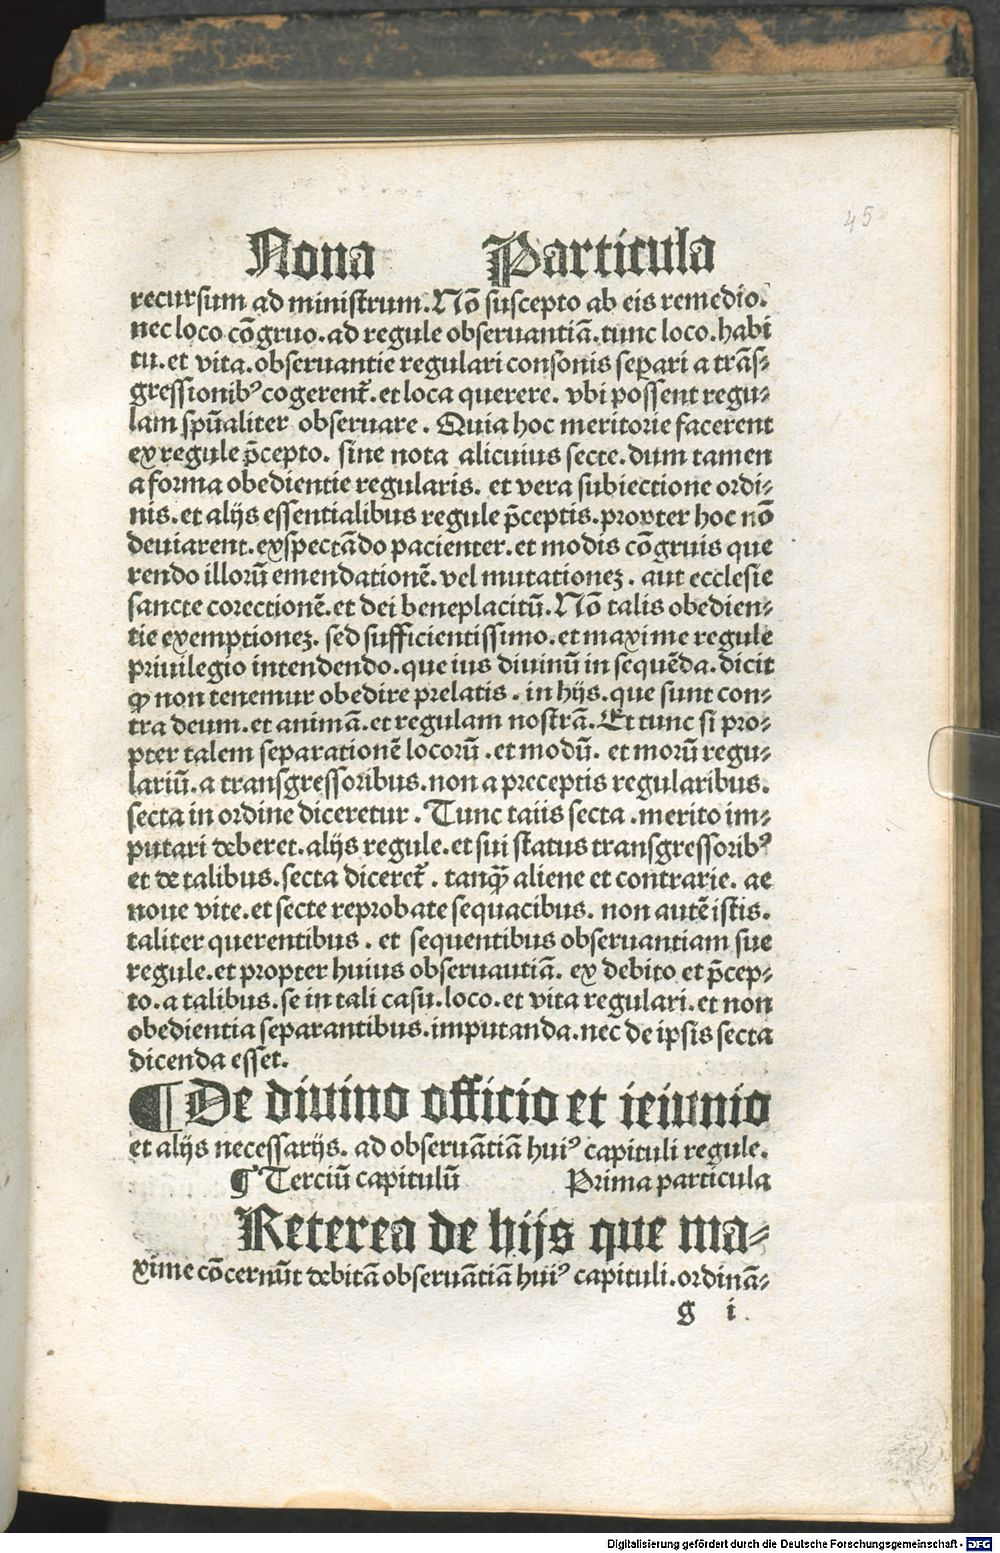 45
Nona Particula
recursum ad ministrum. Nõ suscepto ab eis remedio.
nec loco cõgruo. ad regule obseruantiã. tunc loco. habi
tu. et vita. obseruantie regulari consonis separi a trãs⸗
gressionibꝰ cogerent᷑. et loca querere. vbi possent regu⸗
lam spũaliter obseruare. Quia hoc meritorie facerent
ex regule p̄cepto. sine nota alicuius secte. dum tamen
a forma obedientie regularis. et vera subiectione ordi⸗
nis. et alijs essentialibus regule p̄ceptis. propter hoc nõ
deuiarent. exspectãdo pacienter. et modis cõgruis que
rendo illorũ emendationẽ. vel mutationeꝫ. aut ecclesie
sancte corectionẽ. et dei beneplacitũ. Nõ talis obedien⸗
tie exemptioneꝫ. sed sufficientissimo. et maxime regule
priuilegio intendendo. que ius diuinũ in sequẽda. dicit
ꝙ non tenemur obedire prelatis. in hijs. que sunt con⸗
tra deum. et animã. et regulam nostrã. Et tunc si pro⸗
pter talem separationẽ locorũ. et modũ. et morũ regu⸗
lariũ. a transgressoribus. non a preceptis regularibus.
secta in ordine diceretur. Tunc taiis secta. merito im⸗
putari deberet. alijs regule. et sui status transgressoribꝰ
et de talibus. secta diceret᷑. tanꝙ̃ aliene et contrarie. ae
noue vite. et secte reprobate sequacibus. non autẽ istis.
taliter querentibus. et sequentibus obseruantiam sue
regule. et propter huius obseruautiã. ex debito et p̄cep⸗
to. a talibus. se in tali casu. loco. et vita regulari. et non
obedientia separantibus. imputanda. nec de ipsis secta
dicenda esset.
¶ De diuino officio et ieiunio
et alijs necessarijs. ad obseruãtiã huiꝰ capituli regule.
¶ Terciũ capitulũ Prima particula
Reterea de hijs que ma⸗
xime cõcernũt debitã obseruãtiã huiꝰ capituli. ordinã⸗
g i.
Digitalisierung gefördert durch die Deutsche Forschungsgemeinschaft - DFG